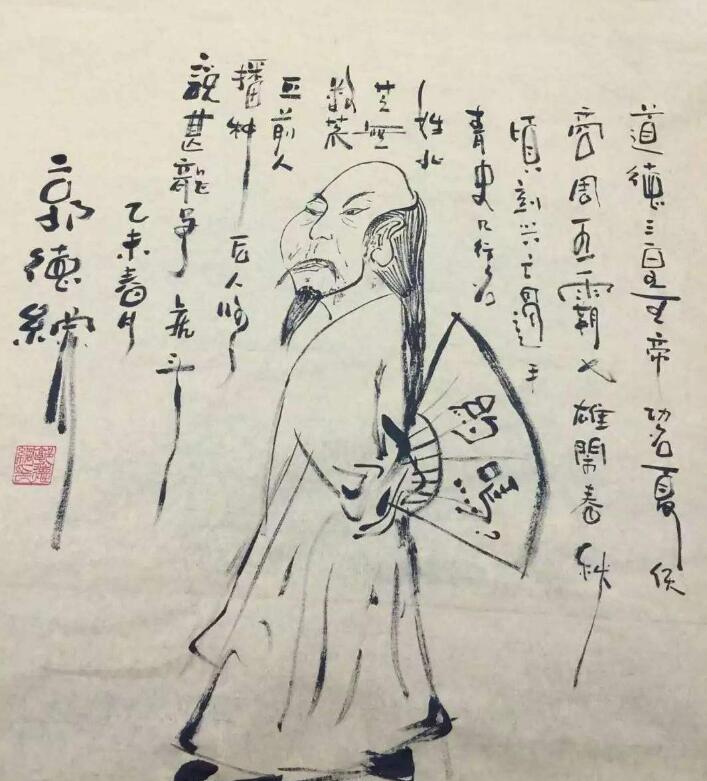 道德三皇五帝 功名夏侯
商周五霸七雄閙春秋
頃刻兴亡過手
青史几行名
姓北
芒無
数荒
丘前人
播种后人收
説甚龍争虎斗
乙未春月
郭德綱